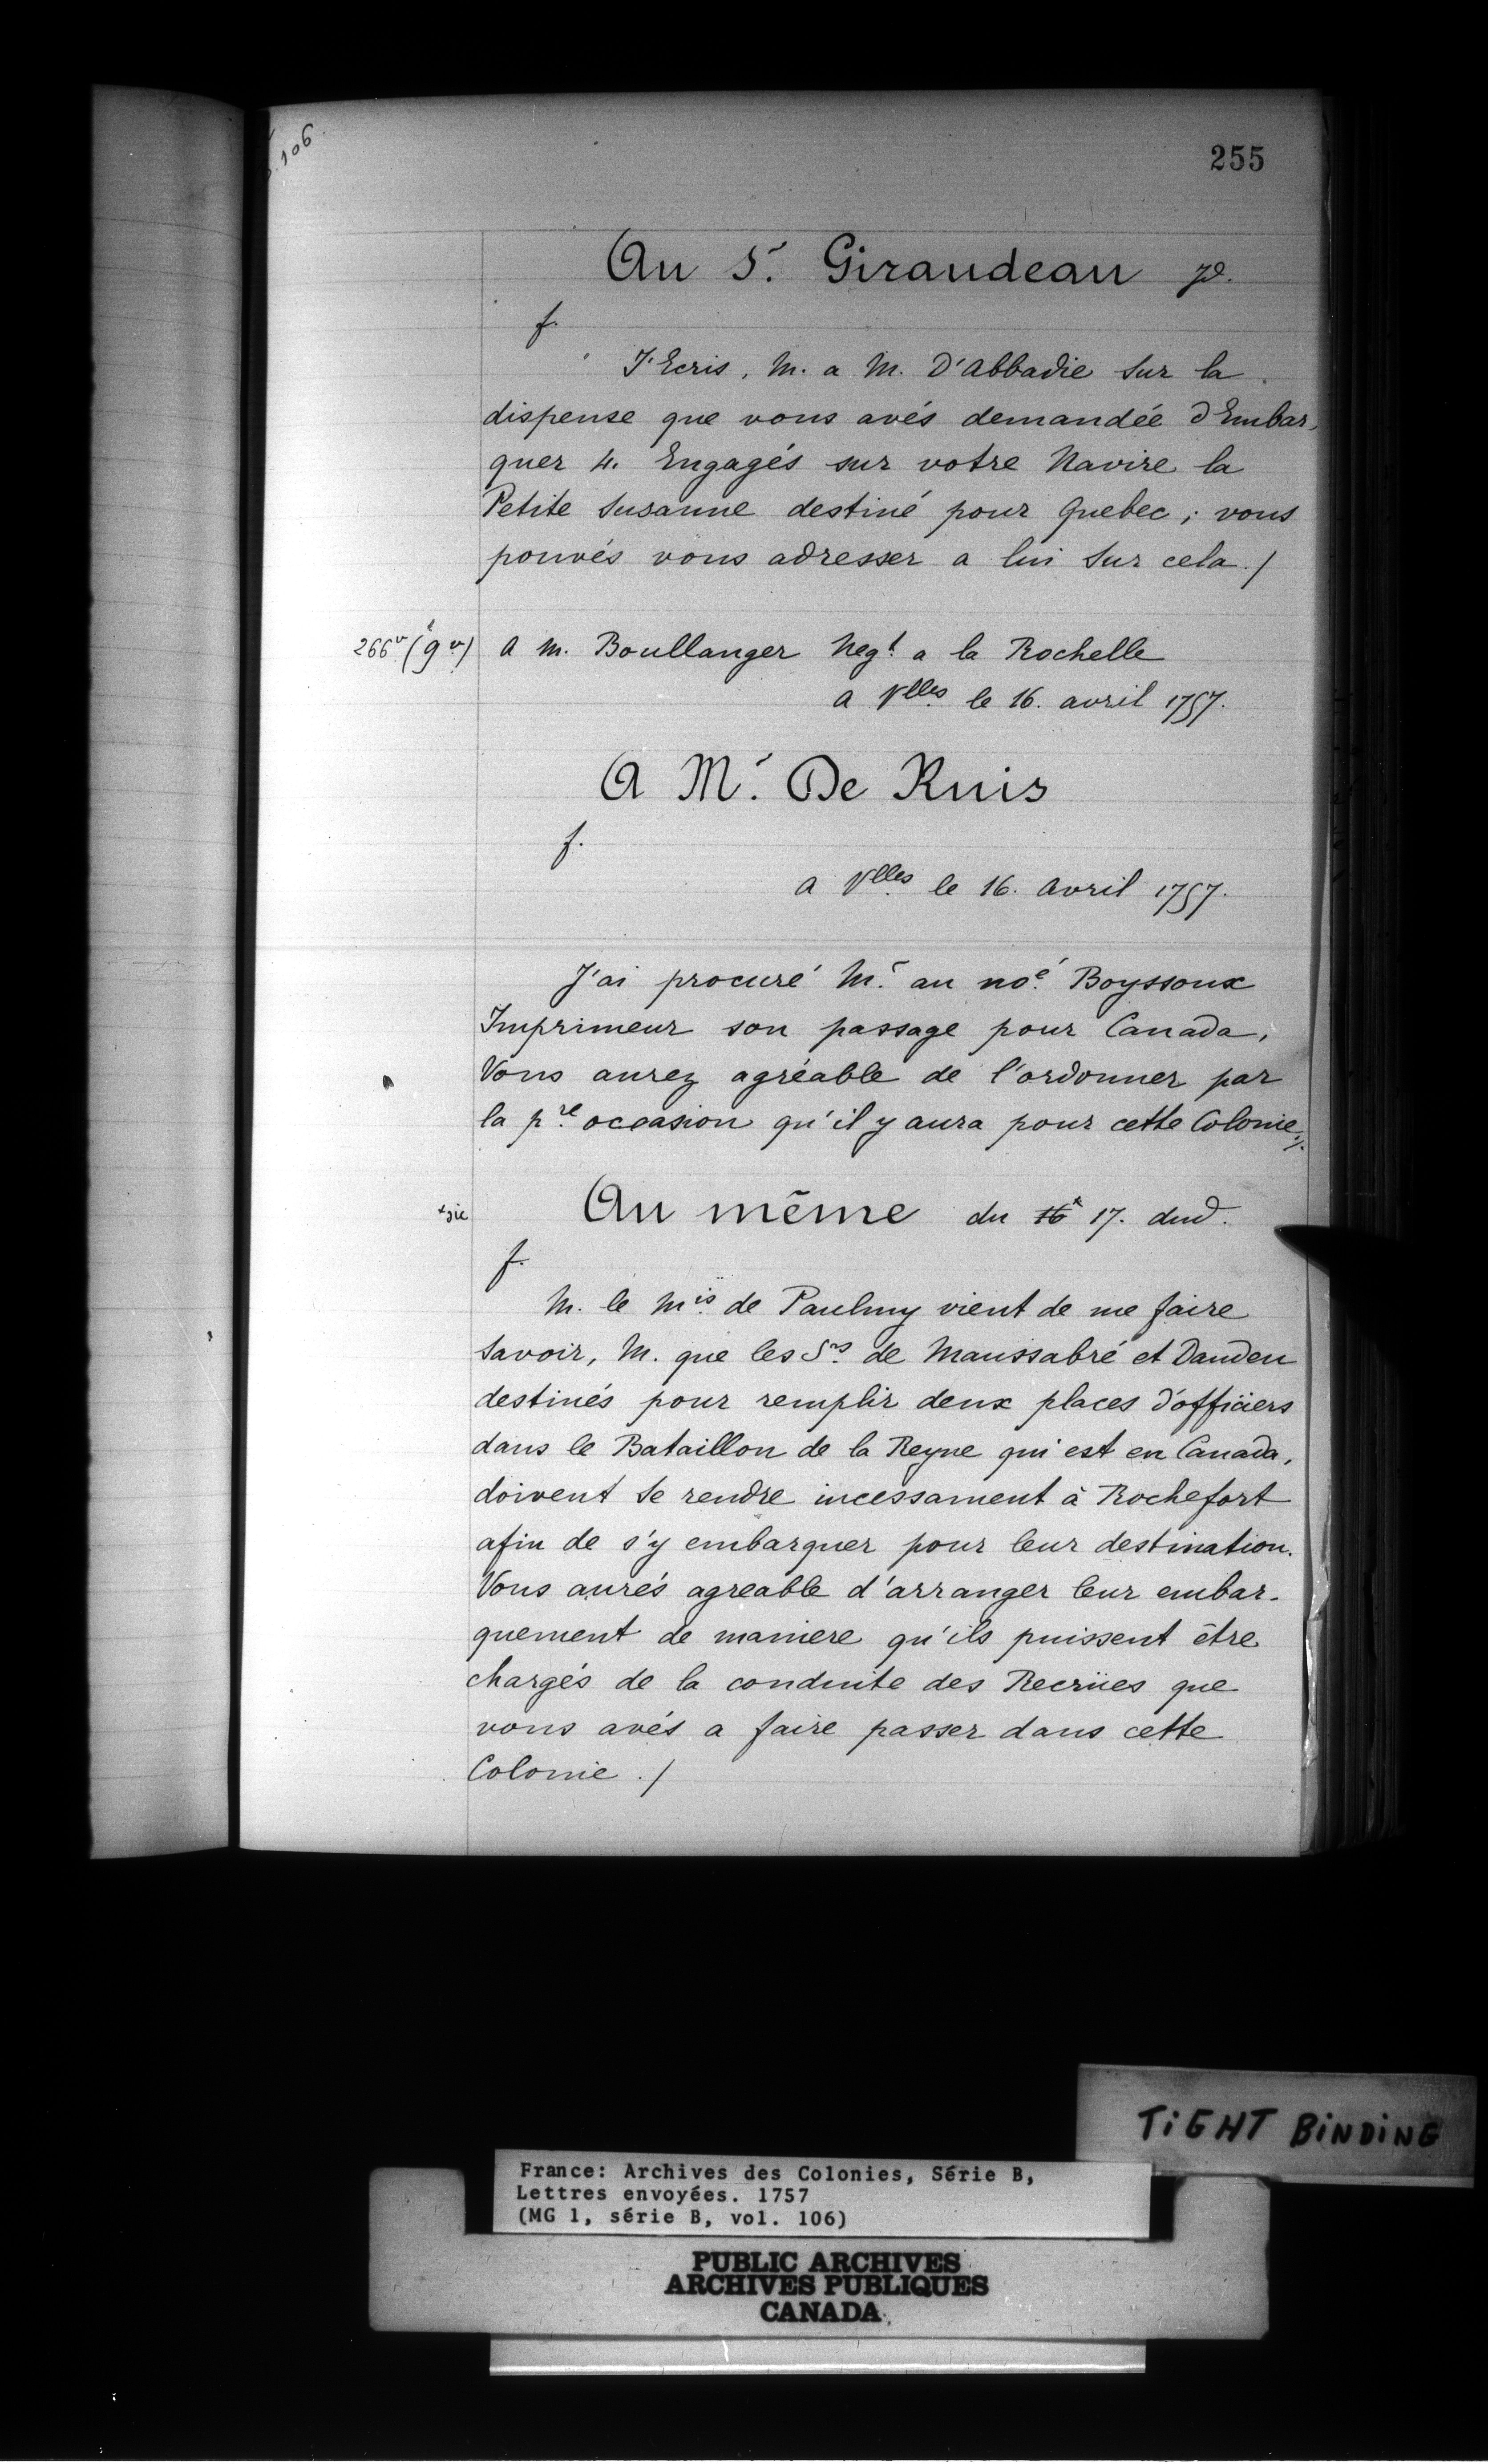 106
255
Au Sr. Giraudeau
f.
J'Ecris, M. a M. D'Abbadie sur la
dispense que vous avés demandée d'Embar,
quer 4. Engagés sur votre Navire la
Petite Susanne destiné pour Quebec; vous
pouvés vous adresser a lui sur cela./
266v (9v) a M. Boullanger Negt. a la Rochelle
a Vlles le 16. avril 1757.
A Mr. De Ruis
f.
a Vlles le 16. Avril 1757.
J'ai procuré Mr. au noé. Boyssoux
Imprimeur son passage pour Canada,
Vous aurez agréable de l'ordonner par
la pre. occasion qu'il y aura pour cette Colonie./.
xsic Au même du 16x 17. dud.
f.
M. le Mis. de Paulmy vient de me faire
savoir, M. que les Srs. de Maussabré et Dauden
destinés pour remplir deux places d'officiers
dans le Bataillon de la Reyne qui est en Canada,
doivent se rendre incessament à Rochefort
afin de s'y embarquer pour leur destination.
Vous aurés agreable d'arranger leur embar-
quement de maniere qu'ils puissent être
chargés de la conduite des Recrües que
vous avés a faire passer dans cette
Colonie ./
TiGHT BiNDiNG
France: Archives des Colonies, Série B,
Lettres envoyées. 1757
(MG 1, série B, vol. 106)
PUBLIC ARCHIVES
ARCHIVES PUBLIQUES
CANADA